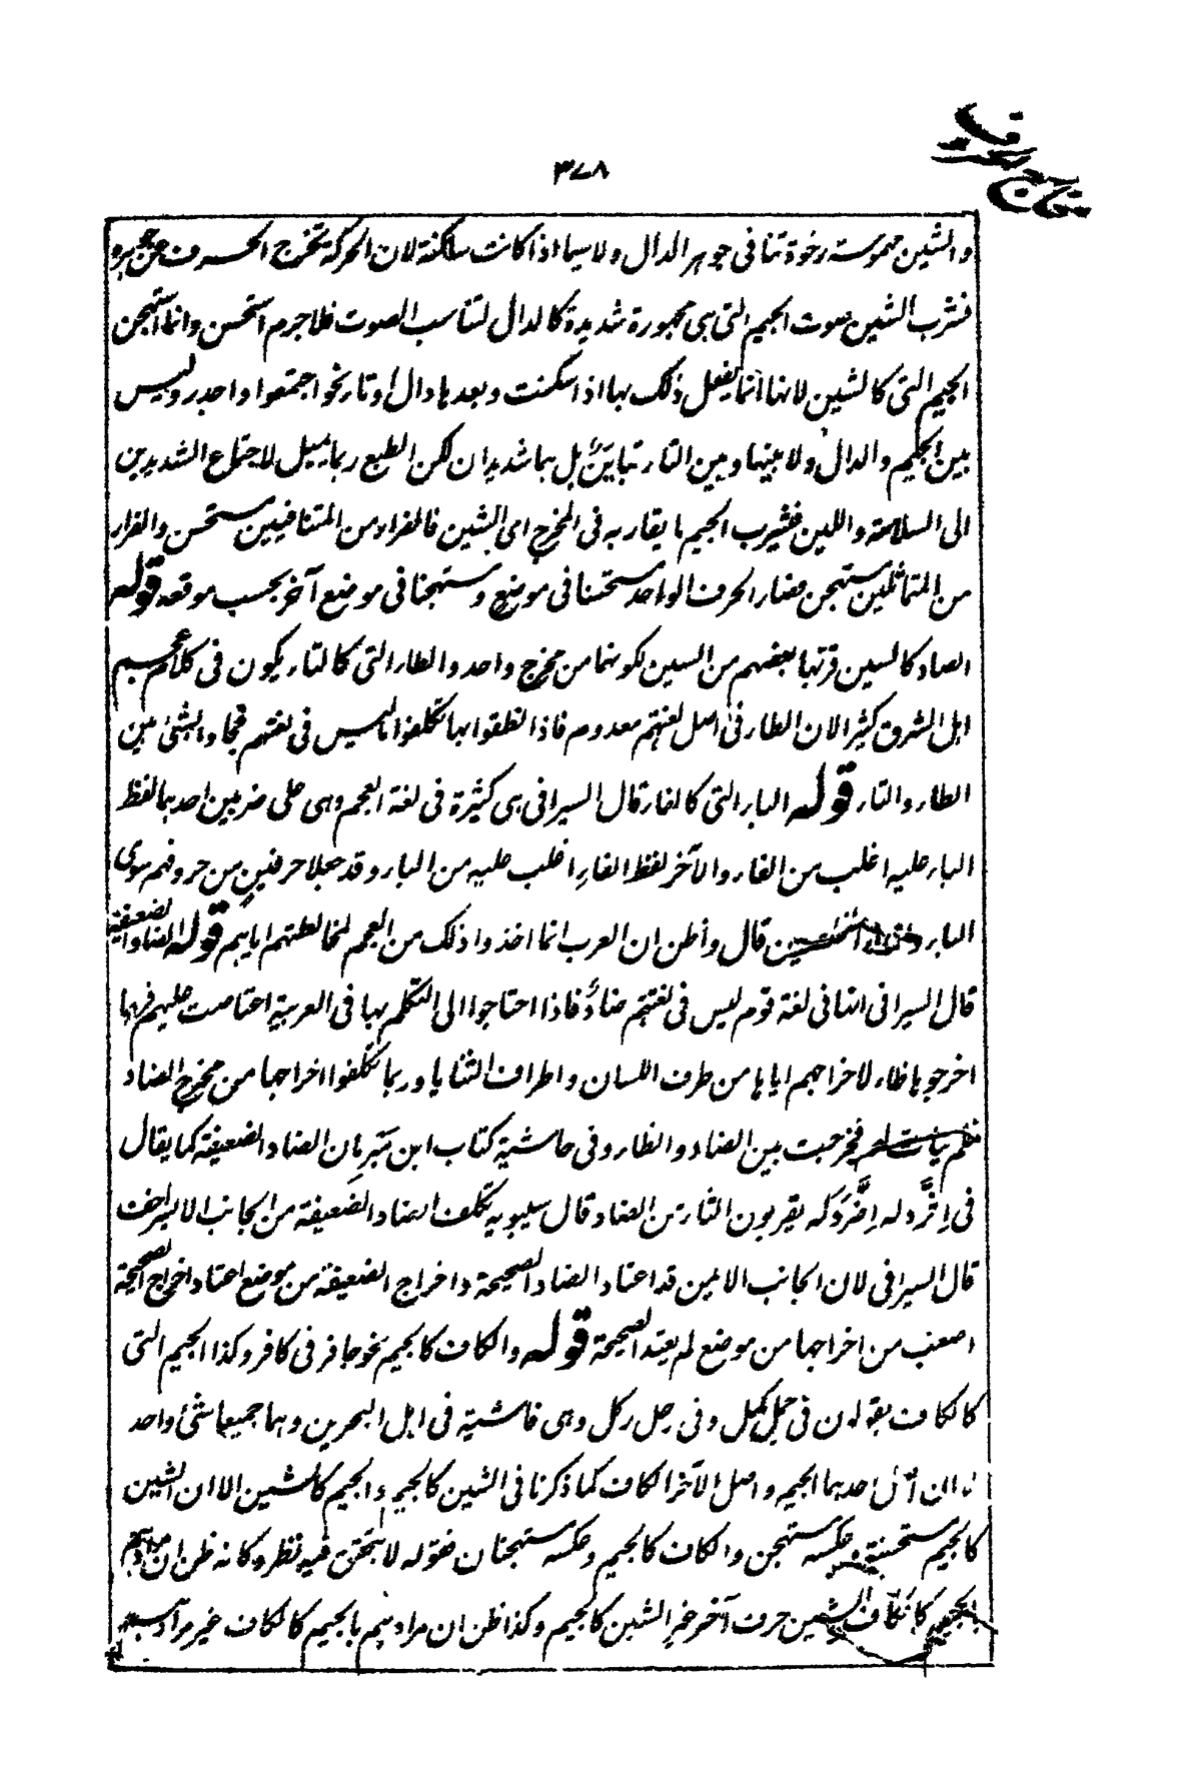 مخارج الحروف
٣٧٨
والشين مهموسة رخوة تنافى جوهر الدال ولا سيما اذا كانت ساكنة لان الحركة تخرج الحرف عن جوهره
فتشرب الشين صوت الجيم التى هى مجهورة شديدة كالدال لتناسب الصوت فلا جرم استحسن وانما استهجن
الجيم التى كالشين لانها انما يفعل ذلك بها اذا سكنت وبعدها دال او تاء نحو اجتمعوا واجدر وليس
بين الجيم والدال ولا بينها وبين التاء تباين بل هما شديدان لكن الطبع ربما يميل لاجتماع الشديدين
الى السلاسة واللين فيشرب الجيم ما يقاربه فى المخرج اى الشين فالفرار من المتنافيين مستحسن والفرار
من المتماثلين مستهجن فصار الحرف الواحد مستحسنا فى موضع ومستهجنا فى موضع آخر بحسب موقعه قوله
الصاد كالسين قربها بعضهم من السين لكونهما من مخرج واحد والطاء التى كالتاء يكون فى كلام عجم
اهل الشرق كثيرا لان الطاء فى اصل لغتهم معدوم فاذا نطقوا بها تكلفوا ما ليس فى لغتهم فجاء بشئ بين
الطاء والتاء قوله الباء التى كالفاء قال السيرافى هى كثيرة فى لغة العجم وهى على ضربين احدهما لفظ
الباء عليه اغلب من الفاء والآخر لفظ الفاء اغلب عليه من الباء وقد جعلا حرفين من حروفهم سوى
الباء والفاء المخلصين قال وأظن ان العرب انما اخذوا ذلك من العجم لمخالطتهم اياهم قوله الضاد الضعيفة
قال السيرافى انها فى لغة قوم ليس فى لغتهم ضاد فاذا احتاجوا الى التكلم بها فى العربية اعتاصت عليهم فربما
اخرجوها ظاء لاخراجهم اياها من طرف اللسان واطراف الثنايا وربما تكلفوا اخراجها من مخرج الضاد
فلم يتأت لهم فخرجت بين الضاد والظاء وفى حاشية كتاب ابن مبرمان الضاد الضعيفة كما يقال
فى اثرد له اضرد له يقربون الثاء من الضاد قال سيبويه تكلف الضاد الضعيفة من الجانب الايسر اخف
قال السيرافى لان الجانب الايمن قد اعتاد الضاد الصحيحة واخراج الضعيفة من موضع اعتاد اخراج الصحيحة
اصعب من اخراجها من موضع لم يعتد الصحيحة قوله والكاف كالجيم نحو جافر فى كافر وكذا الجيم التى
كالكاف يقولون فى جمل كمل وفى رجل ركل وهى فاشية فى اهل البحرين وهما جميعا شئ واحد
الا ان اصل احدهما الجيم واصل الآخر الكاف كما ذكرنا فى الشين كالجيم والجيم كالشين الا ان الشين
كالجيم مستحسنة وعكسه مستهجن والكاف كالجيم وعكسه مستهجنان فقوله لا يتحقق فيه نظر وكانه ظن ان مرادهم
بالجيم كالشين حرف آخر غير الشين كالجيم وكذا ظن ان مرادهم بالجيم كالكاف غير مرادهم